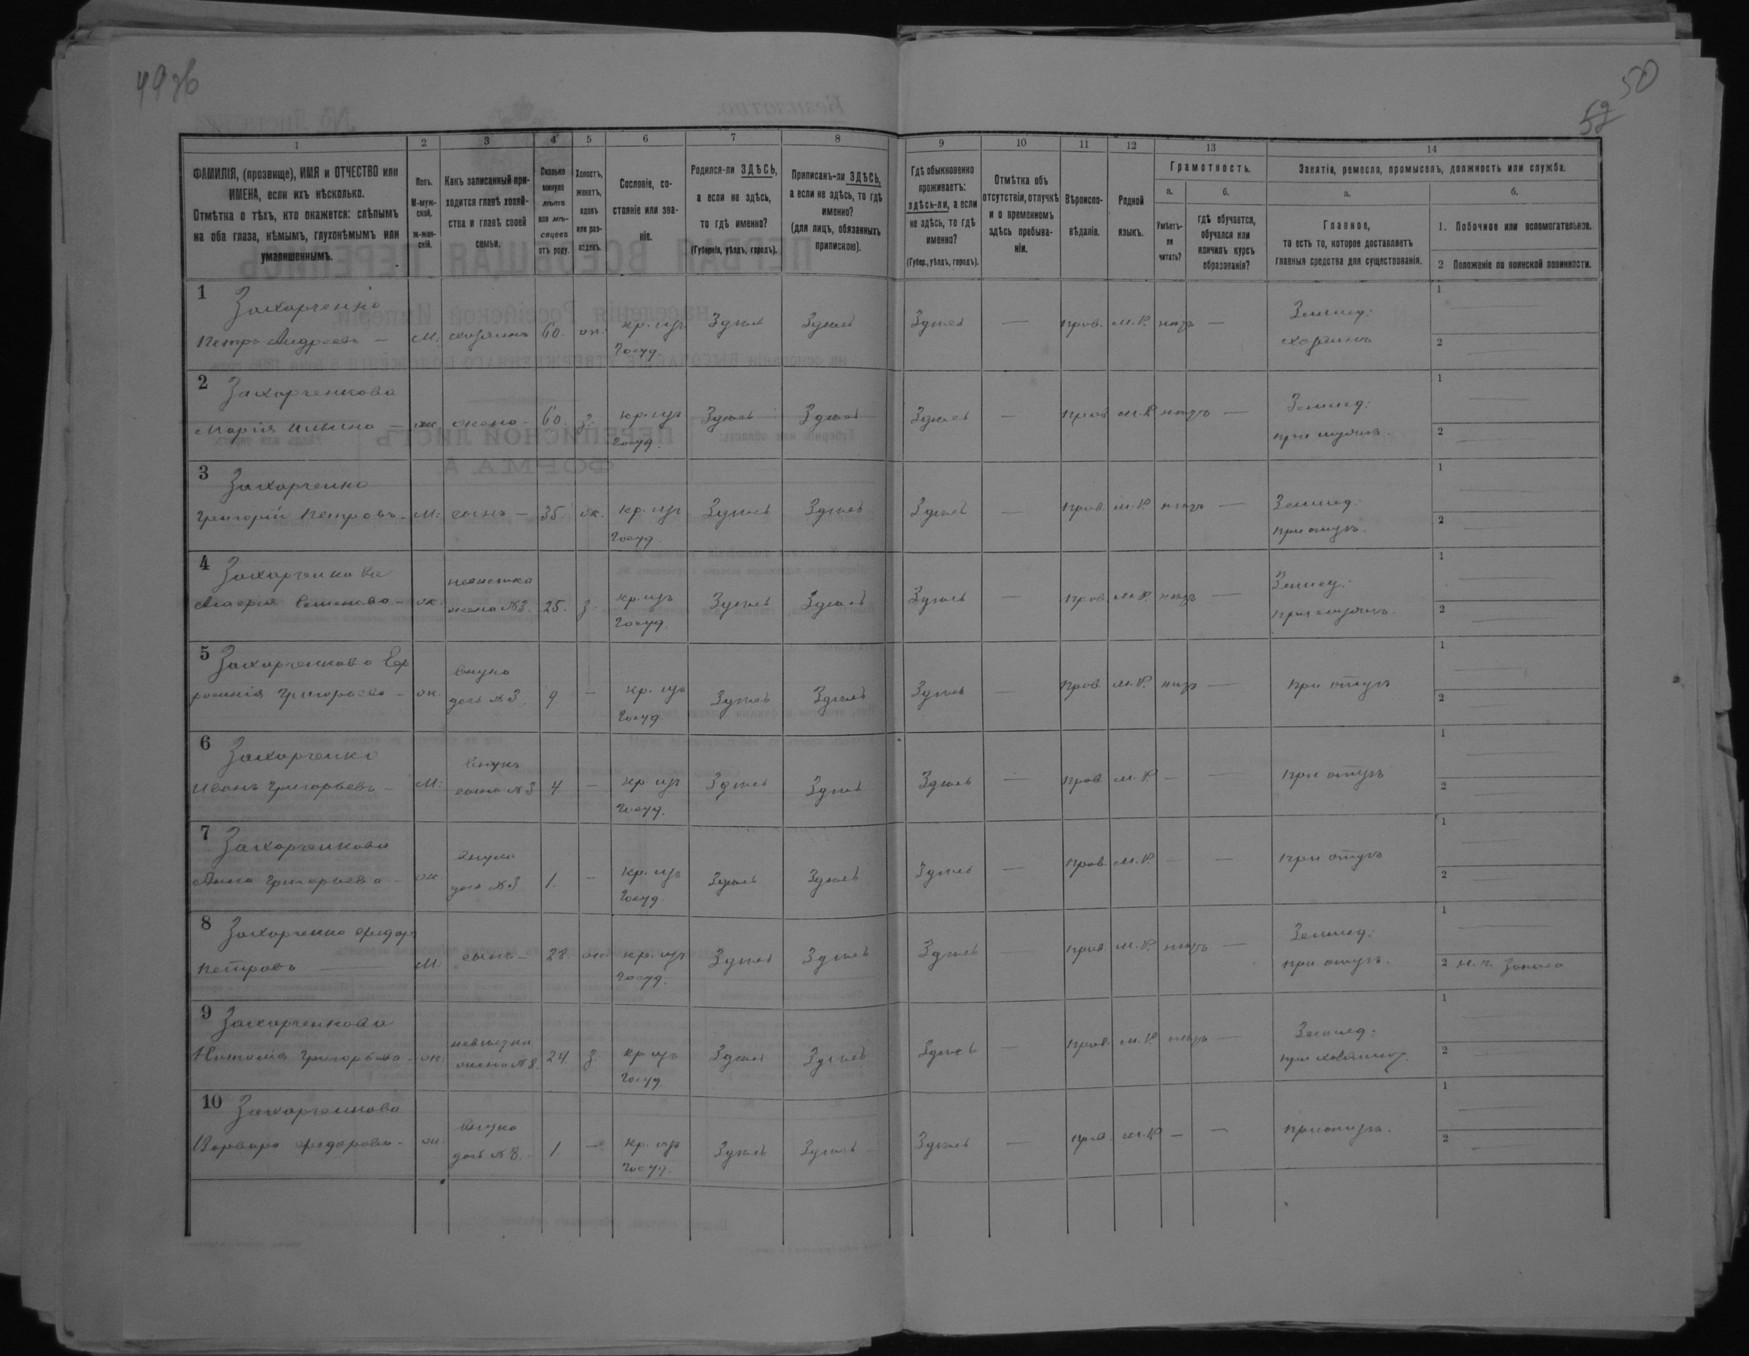 49об
50
52
1
2
3
4
5
6
7
8
9
10
11
12
13
14
ФАМИЛІЯ, (прозвище), ИМЯ и ОТЧЕСТВО или
ИМЕНА, если ихъ нѣсколько.
Отмѣтка о тѣхъ, кто окажется: слѣпымъ
на оба глаза, нѣмымъ, глухонѣмымъ или
умалишеннымъ.
Полъ.
М-муж-
ской.
ж-жен-
скій.
Какъ записанный при-
ходится главѣ хозяй-
ства и главѣ своей
семьи.
Сколько
минуло
лѣтъ
или мѣ-
сяцевъ
отъ роду.
Холостъ,
женатъ,
вдовъ
или раз-
веденъ.
Сословіе, со-
стояніе или зва-
ніе.
Родился-ли ЗДѢСЬ,
а если не здѣсь,
то гдѣ именно?
(Губернія, уѣздъ, городъ).
Приписанъ-ли ЗДѢСЬ,
а если не здѣсь, то гдѣ
именно?
(для лицъ, обязанныхъ
припискою).
Гдѣ обыкновенно
проживаетъ:
здѣсь-ли, а если
не здѣсь, то гдѣ
именно?
(Губер., уѣздъ, городъ).
Отмѣтка объ
отсутствіи, отлучкѣ
и о временномъ
здѣсь пребыва-
ніи.
Вѣроиспо-
вѣданіе.
Родной
языкъ.
Грамотность.
а.
б.
Умѣетъ-
ли
читать?
Гдѣ обучается,
обучался или
кончилъ курсъ
образованія?
Занятіе, ремесло, промыселъ, должность или служба.
а.
б.
Главное,
то есть то, которое доставляетъ
главныя средства для существованія.
1. Побочное или вспомогательное.
2 Положеніе по воинской повинности.
1 Захарченко
Петръ Андреевъ — М. хозяинъ 60. ж. кр. изъ
Госуд. Здѣсь Здѣсь Здѣсь — прав. м.р. нѣтъ — Землед.
хозяинъ 1
2
2 Захарченкова
Марія Ильина — ж. жена - 60. з. кр. изъ
Госуд. Здѣсь Здѣсь Здѣсь — прав. м.р. нѣтъ — Землед.
при мужѣ. 1
2
3 Захарченко
Григорій Петровъ - М. сынъ - 35. ж. кр. изъ
Госуд. Здѣсь Здѣсь Здѣсь — прав. м.р. нѣтъ — Землед.
при отцѣ. 1
2
4 Захарченкова
Семенова - ж. невѣстка
жена №3. 25. з. кр. изъ
Госуд. Здѣсь Здѣсь Здѣсь — прав. м.р. нѣтъ — Землед.
при мужѣ. 1
2
5 Захарченкова Еф
росинія Григорьева - ж. внука
дочь №3. 9 — кр. изъ
Госуд. Здѣсь Здѣсь Здѣсь — прав. м.р. нѣтъ — при отцѣ 1
2
6 Захарченко
Иванъ Григорьевъ - М. внукъ
сынъ №3 4 — кр. изъ
Госуд. Здѣсь Здѣсь Здѣсь — прав. м.р. — — при отцѣ 1
2
7 Захарченкова
Анна Григорьева - ж. внука
дочь №3 1. — кр. изъ
Госуд. Здѣсь Здѣсь Здѣсь — прав. м.р. — — при отцѣ 1
2
8 Захарченко Федоръ
Петровъ — М. сынъ - 28. ж. кр. изъ
Госуд. Здѣсь Здѣсь Здѣсь — прав. м.р. нѣтъ — Землед.
при отцѣ. 1
2 н. ч. запаса
9 Захарченкова
Наталія Григорьева - ж. невѣстка
жена №8. 24 з. кр. изъ
Госуд. Здѣсь Здѣсь Здѣсь — прав. м.р. нѣтъ — Землед. 1
2
10 Захарченкова
Варвара Федорова - ж. внука
дочь №8. 1 — кр. изъ
Госуд. Здѣсь Здѣсь Здѣсь — прав. м.р. — — при отцѣ. 1
2